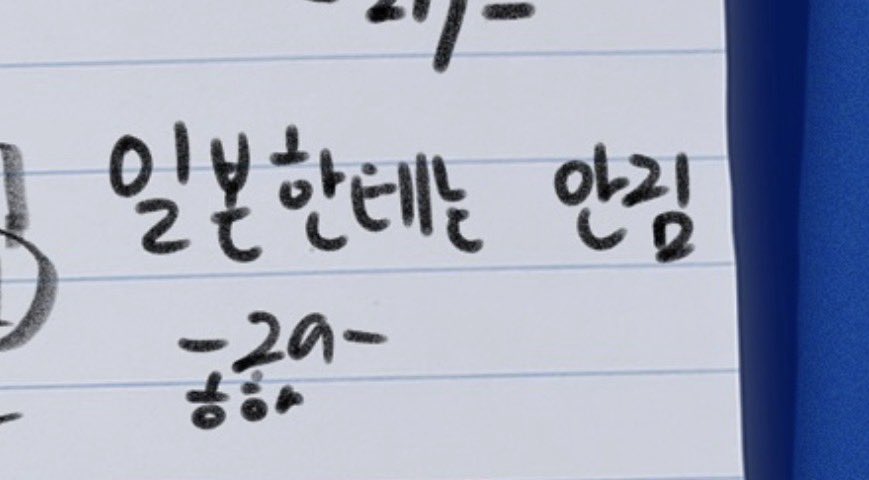 일본한테는 안짐
-2a-